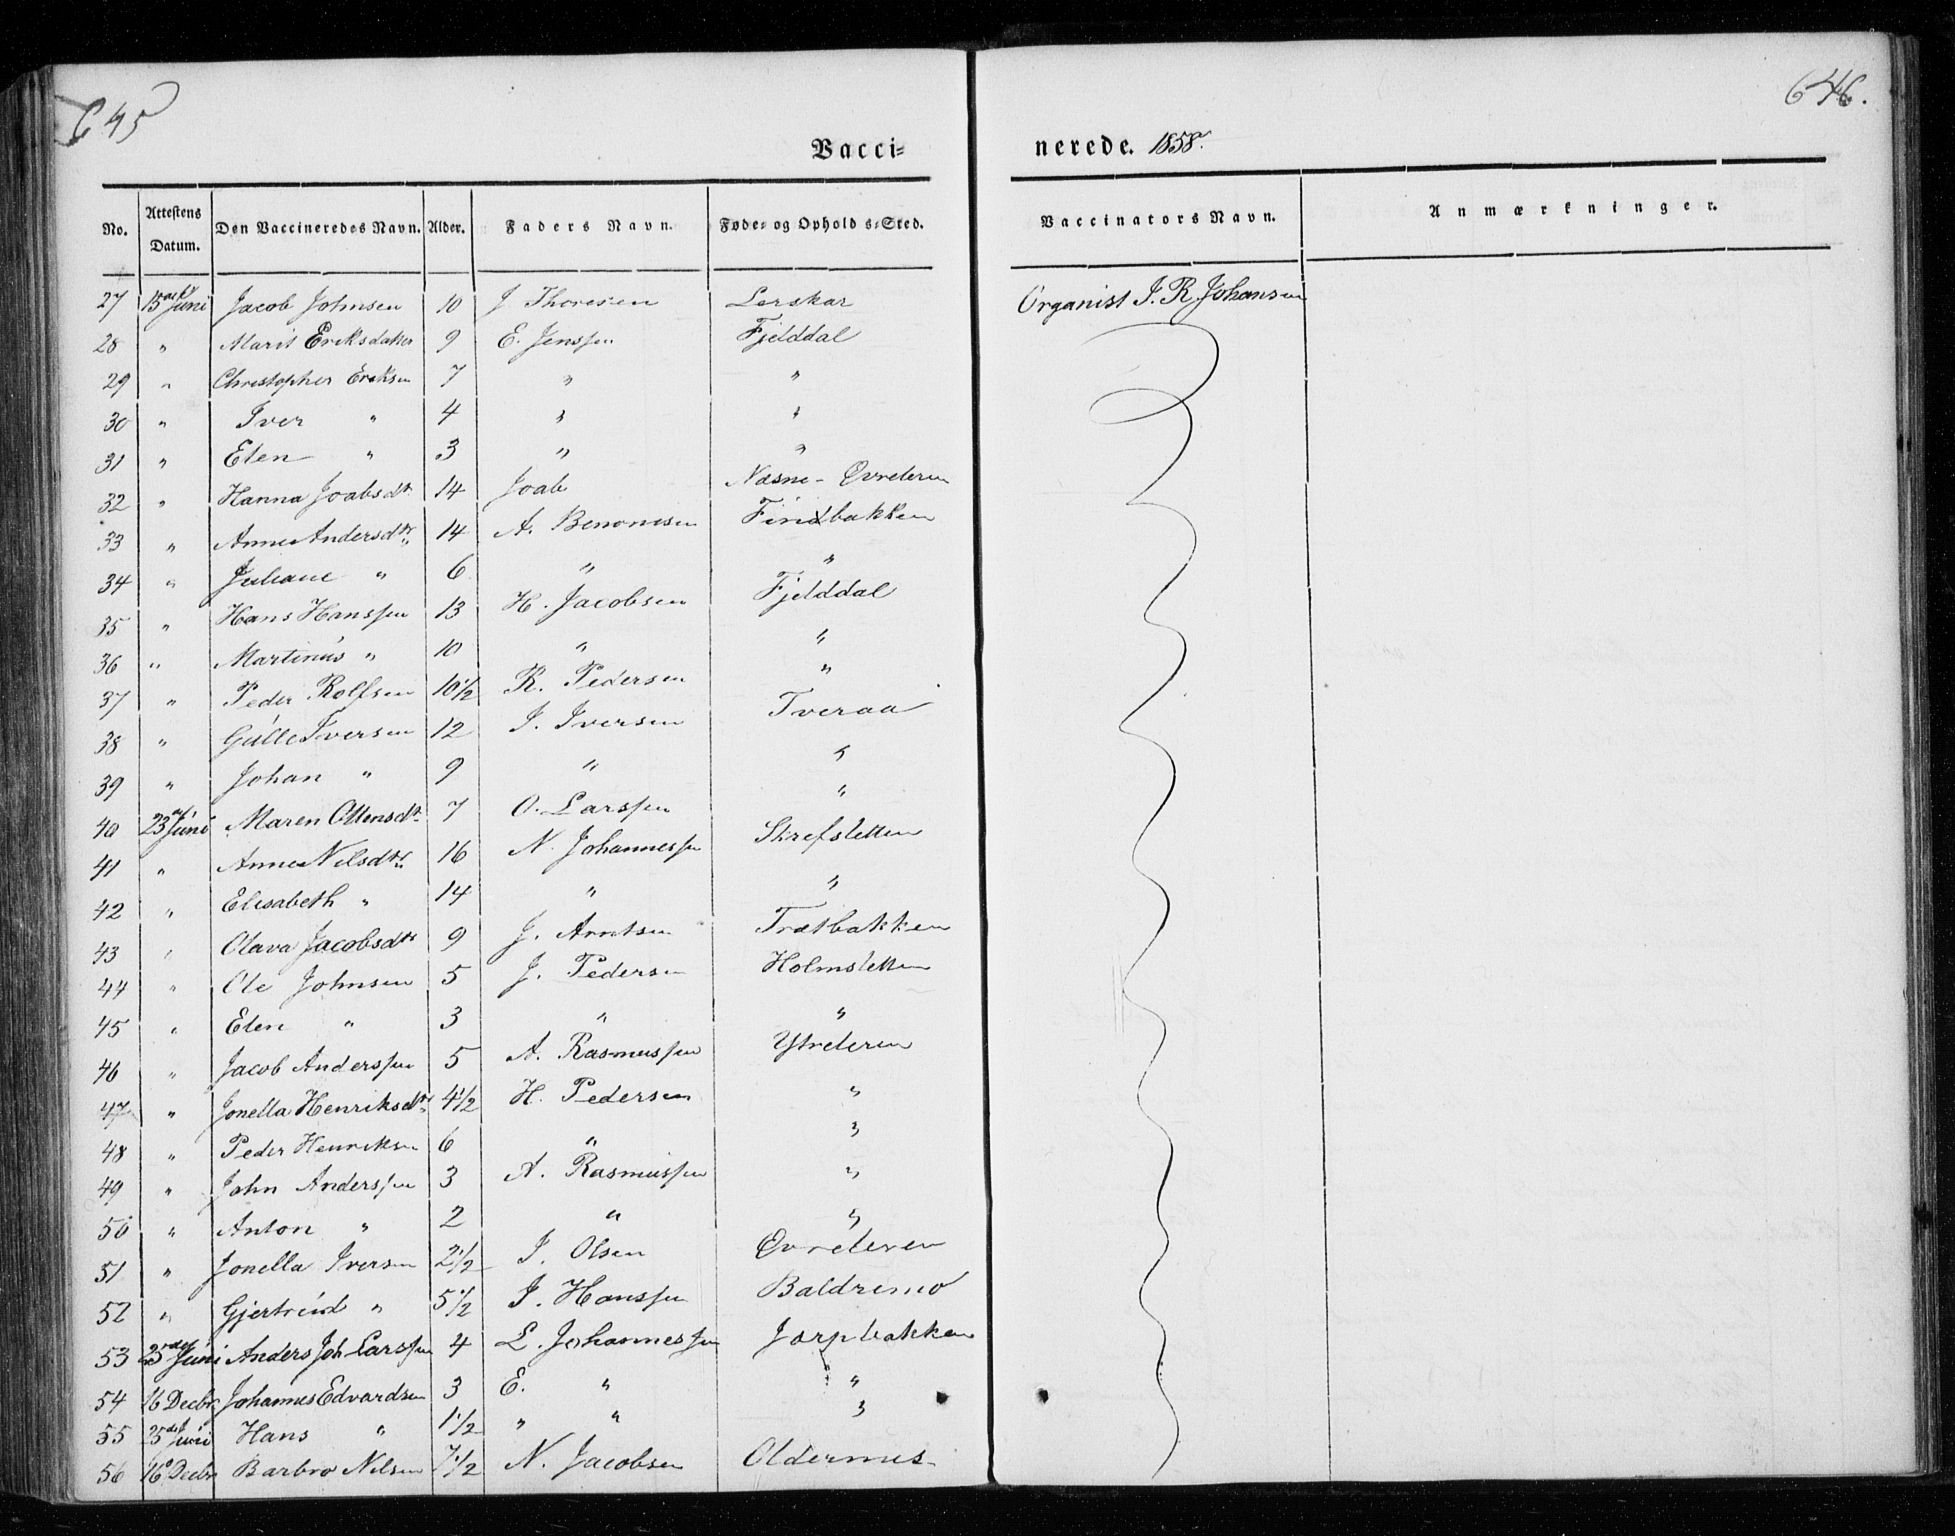 645
646.
Vacci=
nerede. 1858.
No. Attestens Datum. Den Vaccineredes Navn. Alder. Faders Navn. Føde- og Opholds-Sted. Vaccinators Navn. Anmærkninger.
27 15de Juni Jacob Johnsen 10 J Thoresen Lerskar Organist J. R. Johansen
28 " Marit Eriksdatter 9 E. Jenssen Fjelddal
29 " Christopher Eriksen 7 " "
30 " Iver " 4 " "
31 " Elen " 3 " "
32 " Hanna Joabsdtr 14 Joab Næsne- Øvreteren
33 " Anne Andersdtr. 14 A. Benonisen Findbakken
34 " Juliane " 6 " "
35 " Hans Hanssen 13 H. Jacobsen Fjelddal
36 " Martinus " 10 " "
37 " Peder Rolfsen 10 1/2 R. Pedersen "
38 " Gulle Iversen 12 I. Iversen Tveraa
39 " Johan " 9 " "
40 23de Juni Maren Ottensdtr 7 O. Larssen "
41 " Anne Nilsdtr. 16 N. Johannessen Skrefsletten
42 " Elisabeth " 14 " "
43 " Olava Jacobsdtr 9 J. Arntsen Trætbakken
44 " Ole Johnsen 5 J. Pedersen Holmsletten
45 " Elen " 3 " "
46 " Jacob Anderssen 5 A. Rasmussen Ytreteren
47 " Jonella Henriksdtr 4 1/2 H. Pedersen "
48 " Peder Henriksen 6 " "
49 " John Anderssen 3 A. Rasmussen "
50 " Anton " 2 " "
51 " Jonella Iversen 2 1/2 I. Olsen Øvreteren
52 " Gjertrud " 5 1/2 I. Hanssen Baldremo
53 25de Juni Anders Joh Larssen 4 L. Johannessen Jarpbakken
54 16 Decbr Johannes Edvardsen 3 E. " "
55 25de Juni Hans " 1 1/2 " " "
56 16 Decbr Barbro Nilsen 7 1/2 N. Jacobsen Oldernæs